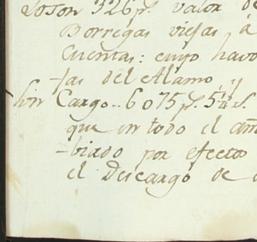 Son 326 p.s valor de
Borregas viejas, a
Cuentas: cuyo havo
jas del Alamo
Sin Cargo.. 6075 p.s 5 r.s
que en todo el año
birado por efecto
el Descargo de